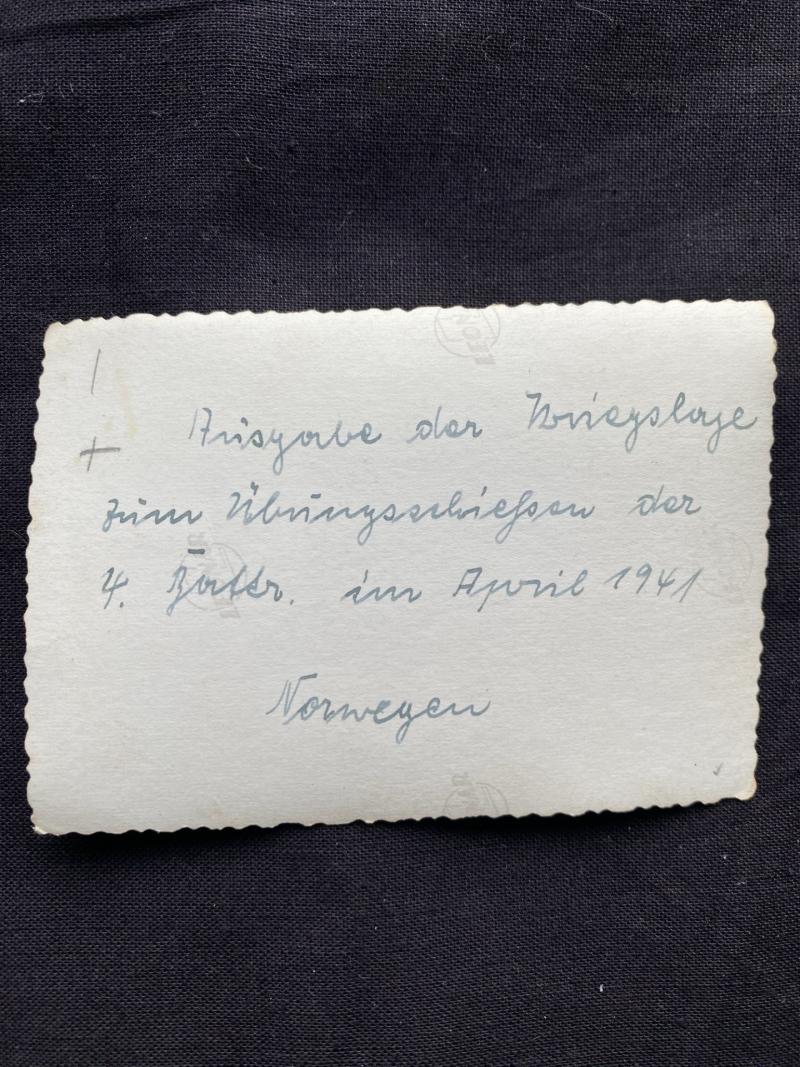 Ausgabe der Kriegslage
zum Übungsschießen der
4. Battr. im April 1941
Norwegen